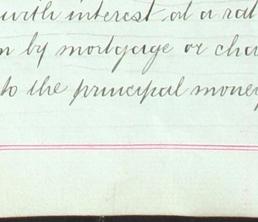 with interest at a rat
n by mortgage or cha
to the principal money